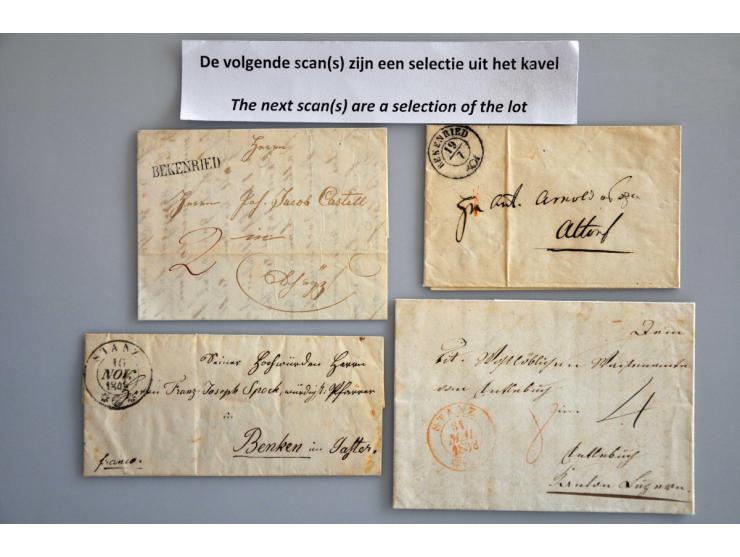 De volgende scan(s) zijn een selectie uit het kavel
The next scan(s) are a selection of the lot
Herrn
BEKENRIED
Herrn Joh. Jacob Castell
2 in
BEKENRIED
19
7
Ant. Arnold
Altorf
STANZ
16
NOV.
Seiner Hochwürden Herrn
Herrn Franz Joseph Speck, Pfarrer
in
Benken im Gaster.
franco.
Dem
Wohllöblichen
von Entlebuch
STANZ
31
MAI
in
4
Entlebuch
Kanton Luzern.